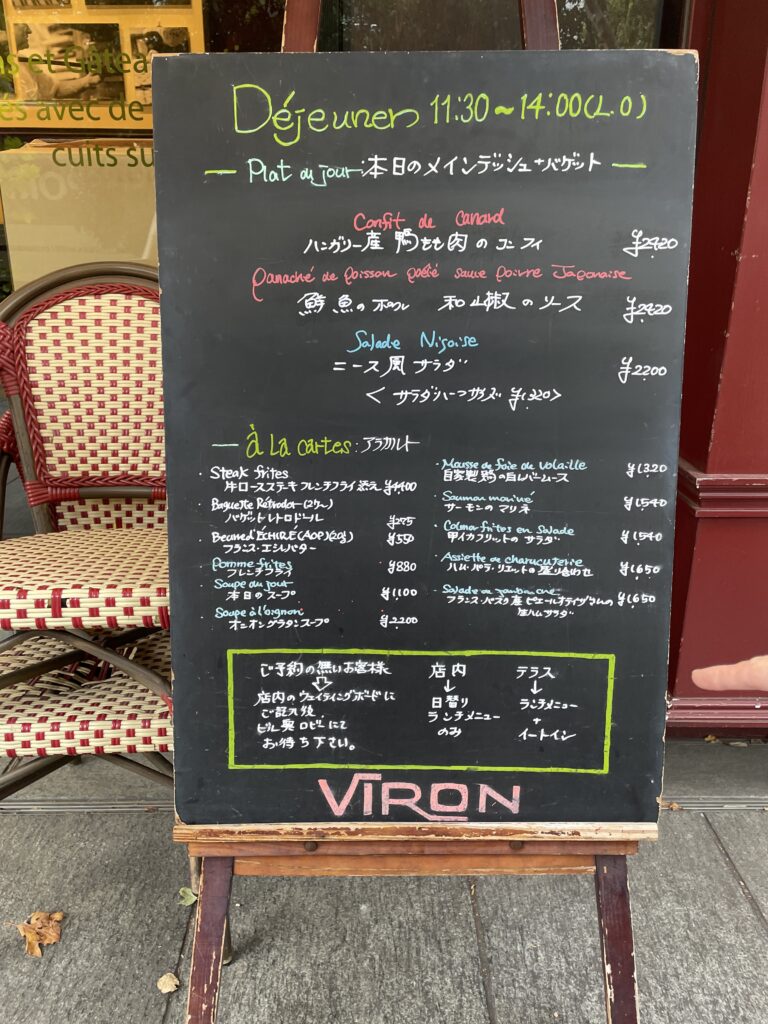 ns et Gâtea
és avec de
cuits su
Déjeuner 11:30~14:00(L.O)
Plat du jour:本日のメインディシュ+バゲット
Confit de Canard
ハンガリー産 鴨もも肉のコンフィ ¥2420
Panaché de poisson poêlé sauce poivre Japonaise
鮮魚のポワレ 和山椒のソース ¥2420
Salade Niçoise
ニース風サラダ ¥2200
<サラダハーフサイズ ¥1320>
à La cartes:アラカルト
・Steak frites
牛ロースステーキ フレンチフライ添え ¥4400
・Baguette Rétrodor(2ケ〜)
バゲットレトロドール ¥275
・Beurre d'ÉCHIRÉ(AOP)(20g)
フランス・エシレバター ¥550
・Pomme frites
フレンチフライ ¥880
・Soupe du jour
本日のスープ ¥1100
・Soupe à l'oignon
オニオングラタンスープ ¥2200
・Mousse de foie de volaille ¥1320
自家製 鶏の白レバームース
・Saumon mariné ¥1540
サーモンのマリネ
・Colmar frites en Salade ¥1540
甲イカフリットのサラダ
・Assiette de charucuterie ¥1650
ハム・パテ・リエットの盛り合わせ
・Salade de jambon cru ¥1650
フランス・バスク産 ピエールオテイザさんの
生ハムサラダ
ご予約の無いお客様
⇩
店内のウェイティングボードに
ご記入後
ビル奥ロビーにて
お待ち下さい。
店内
↓
日替り
ランチメニュー
のみ
テラス
↓
ランチメニュー
+
イートイン
VIRON